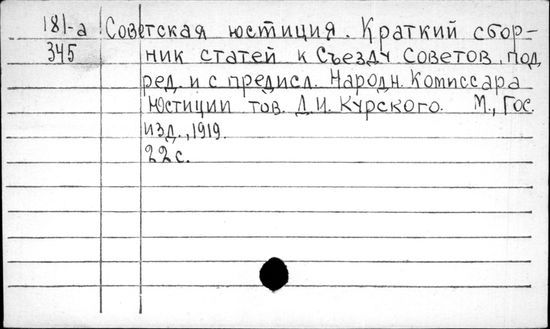 181-а Советская юстиция. Краткий сбор-
345 ник статей к Съезду Советов, под
ред. и с предисл. Народн. Комиссара
Юстиции тов. Д.И. Курского. М., Гос.
изд., 1919.
22 с.